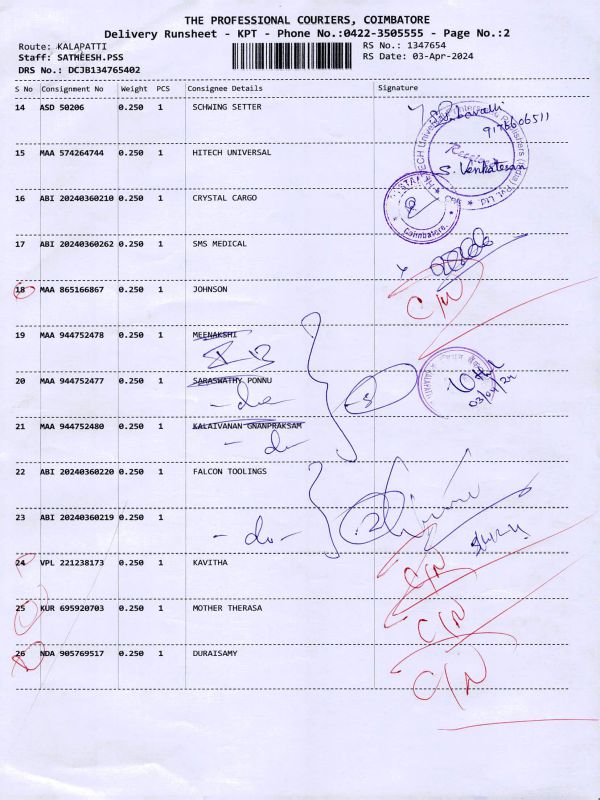 THE PROFESSIONAL COURIERS, COIMBATORE
Delivery Runsheet - KPT - Phone No.:0422-3505555 - Page No.:2
Route: KALAPATTI RS No.: 1347654
Staff: SATHEESH.PSS RS Date: 03-Apr-2024
DRS No.: DCJB134765402
S No Consignment No Weight PCS Consignee Details Signature
14 ASD 50206 0.250 1 SCHWING SETTER
9176606511
15 MAA 574264744 0.250 1 HITECH UNIVERSAL
S. Venkatesan
16 ABI 20240360210 0.250 1 CRYSTAL CARGO
Coimbatore.
17 ABI 20240360262 0.250 1 SMS MEDICAL
18 MAA 865166867 0.250 1 JOHNSON C/N
19 MAA 944752478 0.250 1 MEENAKSHI
20 MAA 944752477 0.250 1 SARASWATHY PONNU
-do- 03/04/24
21 MAA 944752480 0.250 1 KALAIVANAN GNANPRAKSAM
-do-
22 ABI 20240360220 0.250 1 FALCON TOOLINGS
23 ABI 20240360219 0.250 1
-do-
24 VPL 221238173 0.250 1 KAVITHA C/N
25 KUR 695920703 0.250 1 MOTHER THERASA C/N
26 NDA 905769517 0.250 1 DURAISAMY C/N